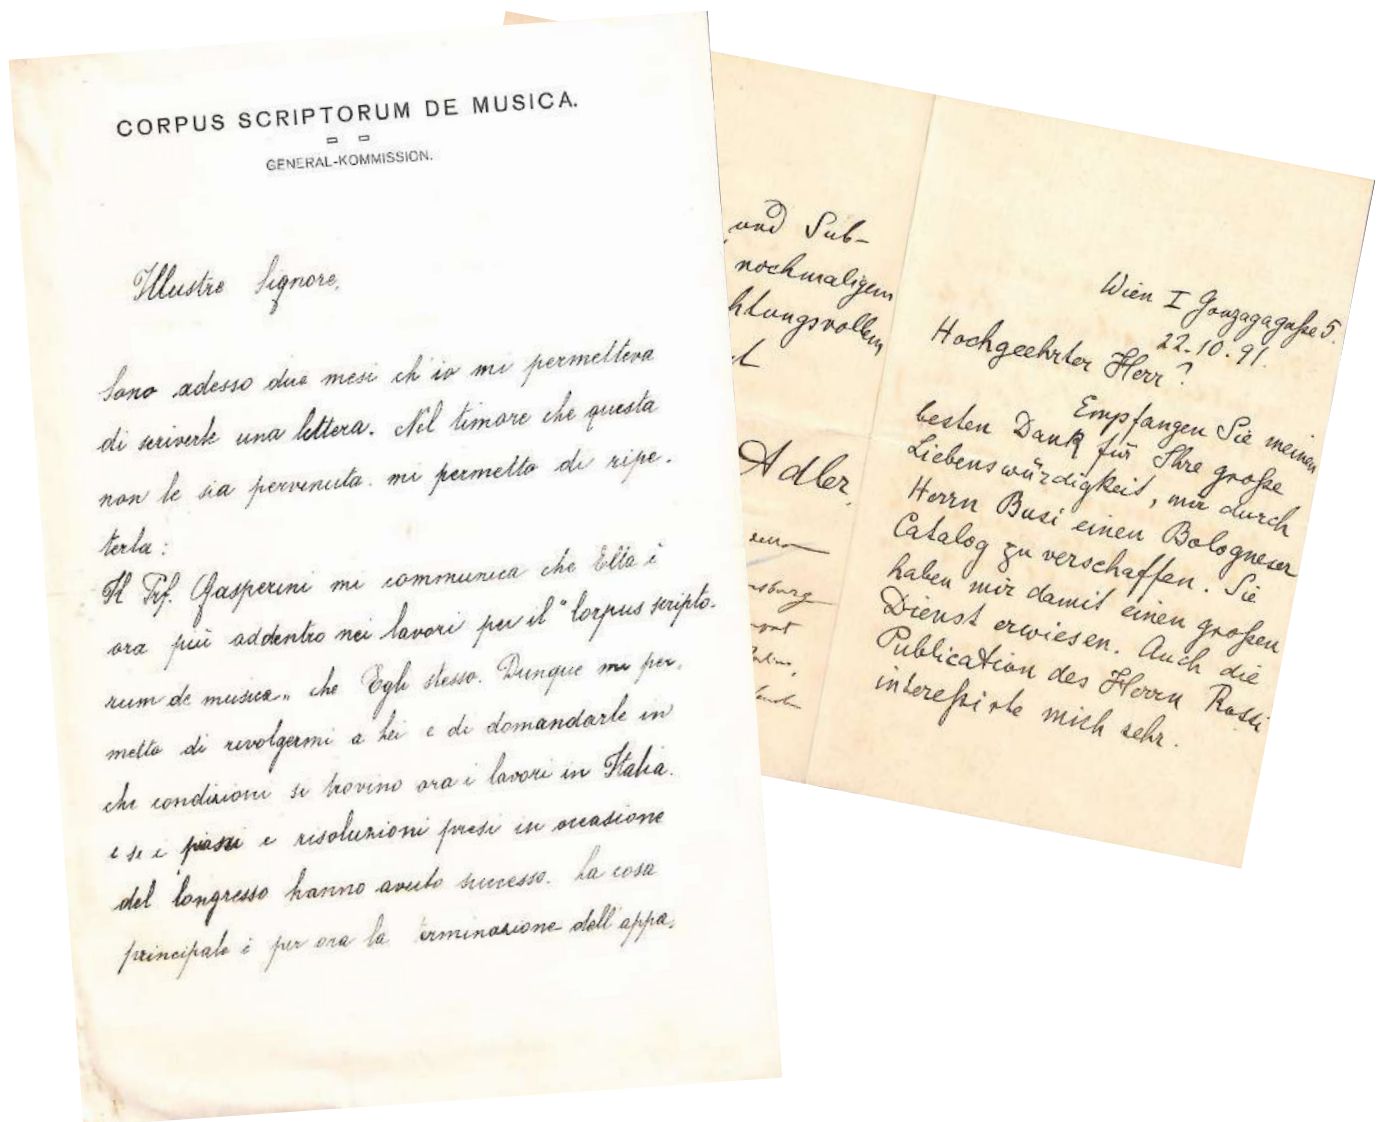 CORPUS SCRIPTORUM DE MUSICA.
GENERAL-KOMMISSION.
Illustre Signore,
Sono adesso due mesi ch'io mi permetteva
di scriverle una lettera. Nel timore che questa
non le sia pervenuta. mi permetto di ripe-
terla:
Il Prf. Gasperini mi communica che Ella è
ora più addentro nei lavori per il "Corpus scripto-
rum de musica„ che Egli stesso. Dunque mi per-
metto di rivolgermi a Lei e di domandarle in
che condizioni si trovino ora i lavori in Italia.
e se i passi e risoluzioni presi in occasione
del Congresso hanno avuto successo. La cosa
principale è per ora la terminazione dell'appa-
und Sub-
nochmaligem
htungsvollem
Adler
nsburg
Wien I Gonzagagaße 5.
22.10.91.
Hochgeehrter Herr!
Empfangen Sie meinen
besten Dank für Ihre große
Liebenswürdigkeit, mir durch
Herrn Busi einen Bologneser
Catalog zu verschaffen. Sie
haben mir damit einen großen
Dienst erwiesen. Auch die
Publication des Herrn Rossi
intereßirte mich sehr.